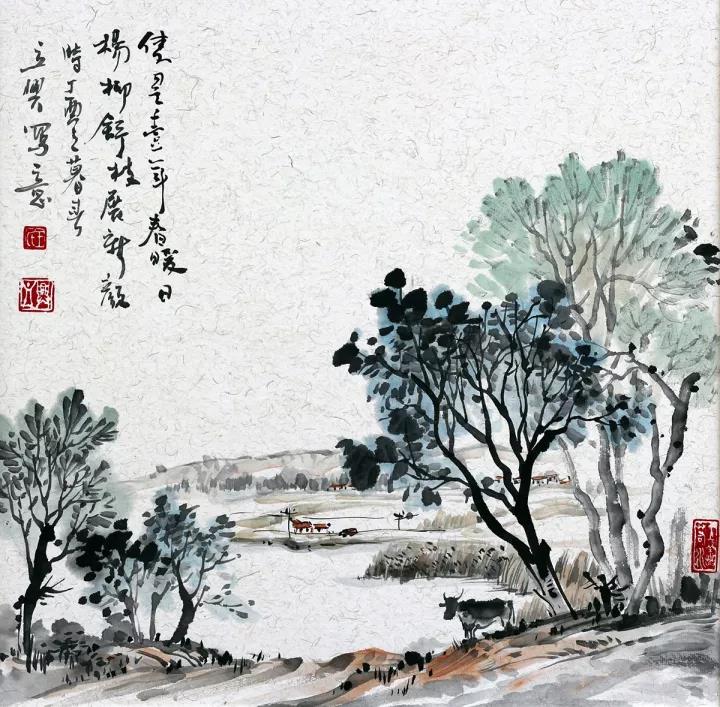 年春暖日
楊柳舒枝展新顏
時丁酉之暮春
立興寫意